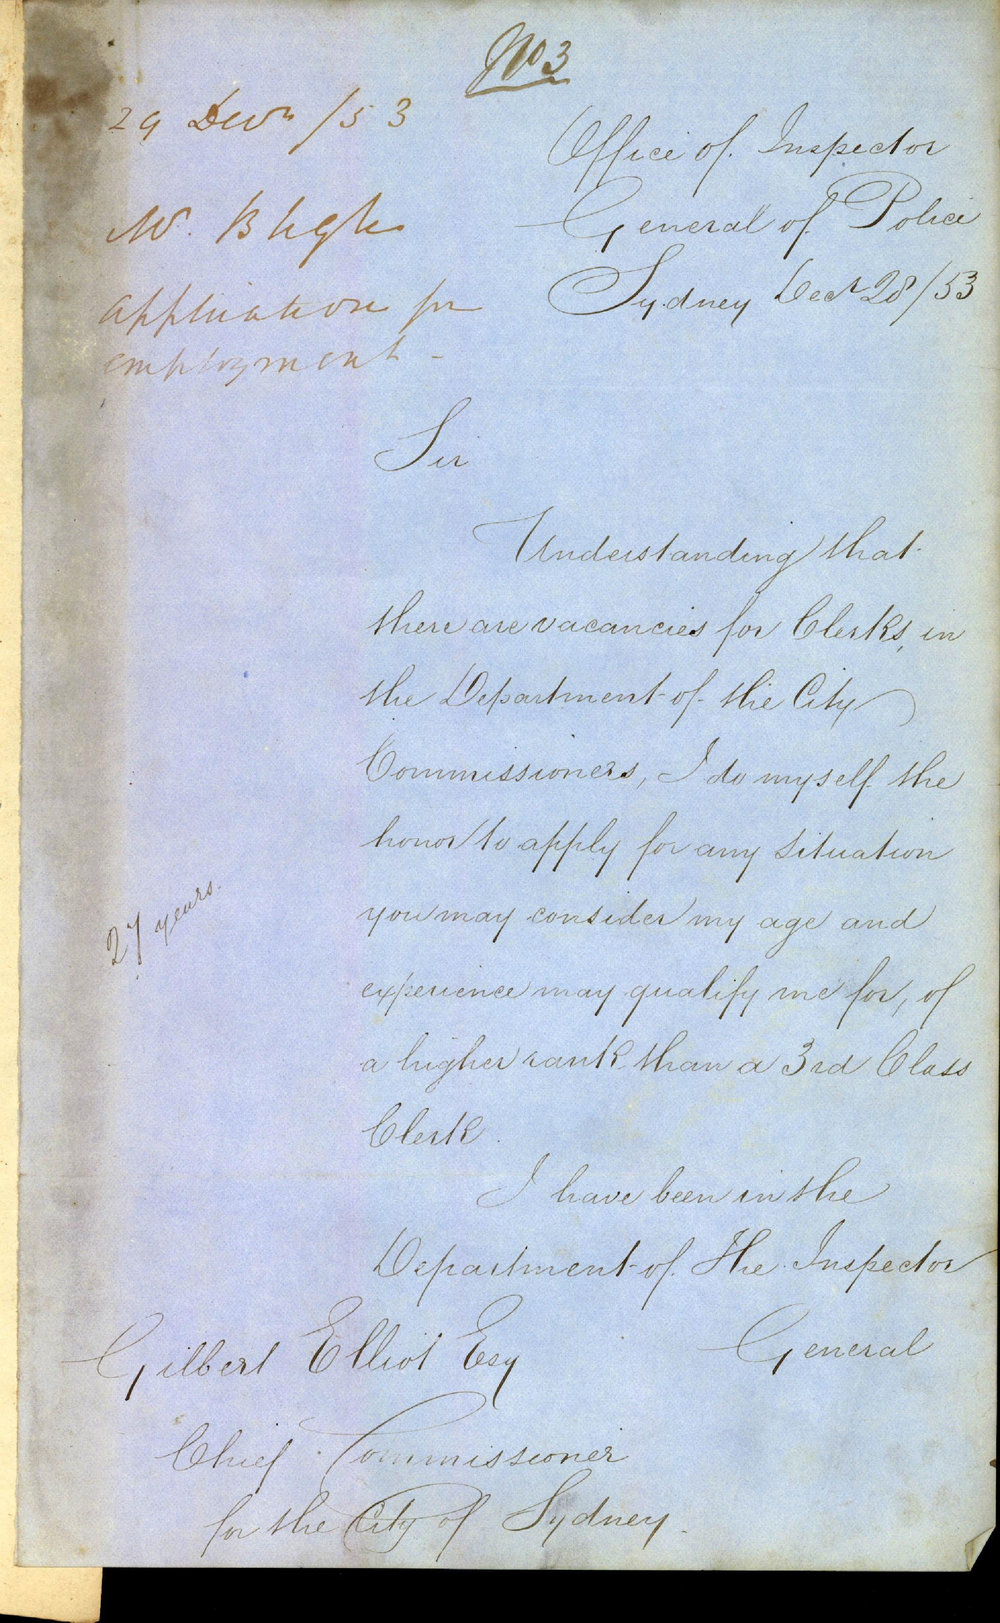 No 3
29 Decr /53
W. Bligh
application for
employment -
Office of Inspector
General of Police
Sydney Decr 28/53
Sir
Understanding that
there are vacancies for Clerks, in
the Department of the City
Commissioners, I do myself the
honor to apply for any situation
you may consider my age and
27 years.
experience may qualify me for, of
a higher rank than a 3rd Class
Clerk.
I have been in the
Department of The Inspector
General
Gilbert Elliot Esq
Chief Commissioner
for the City of Sydney.